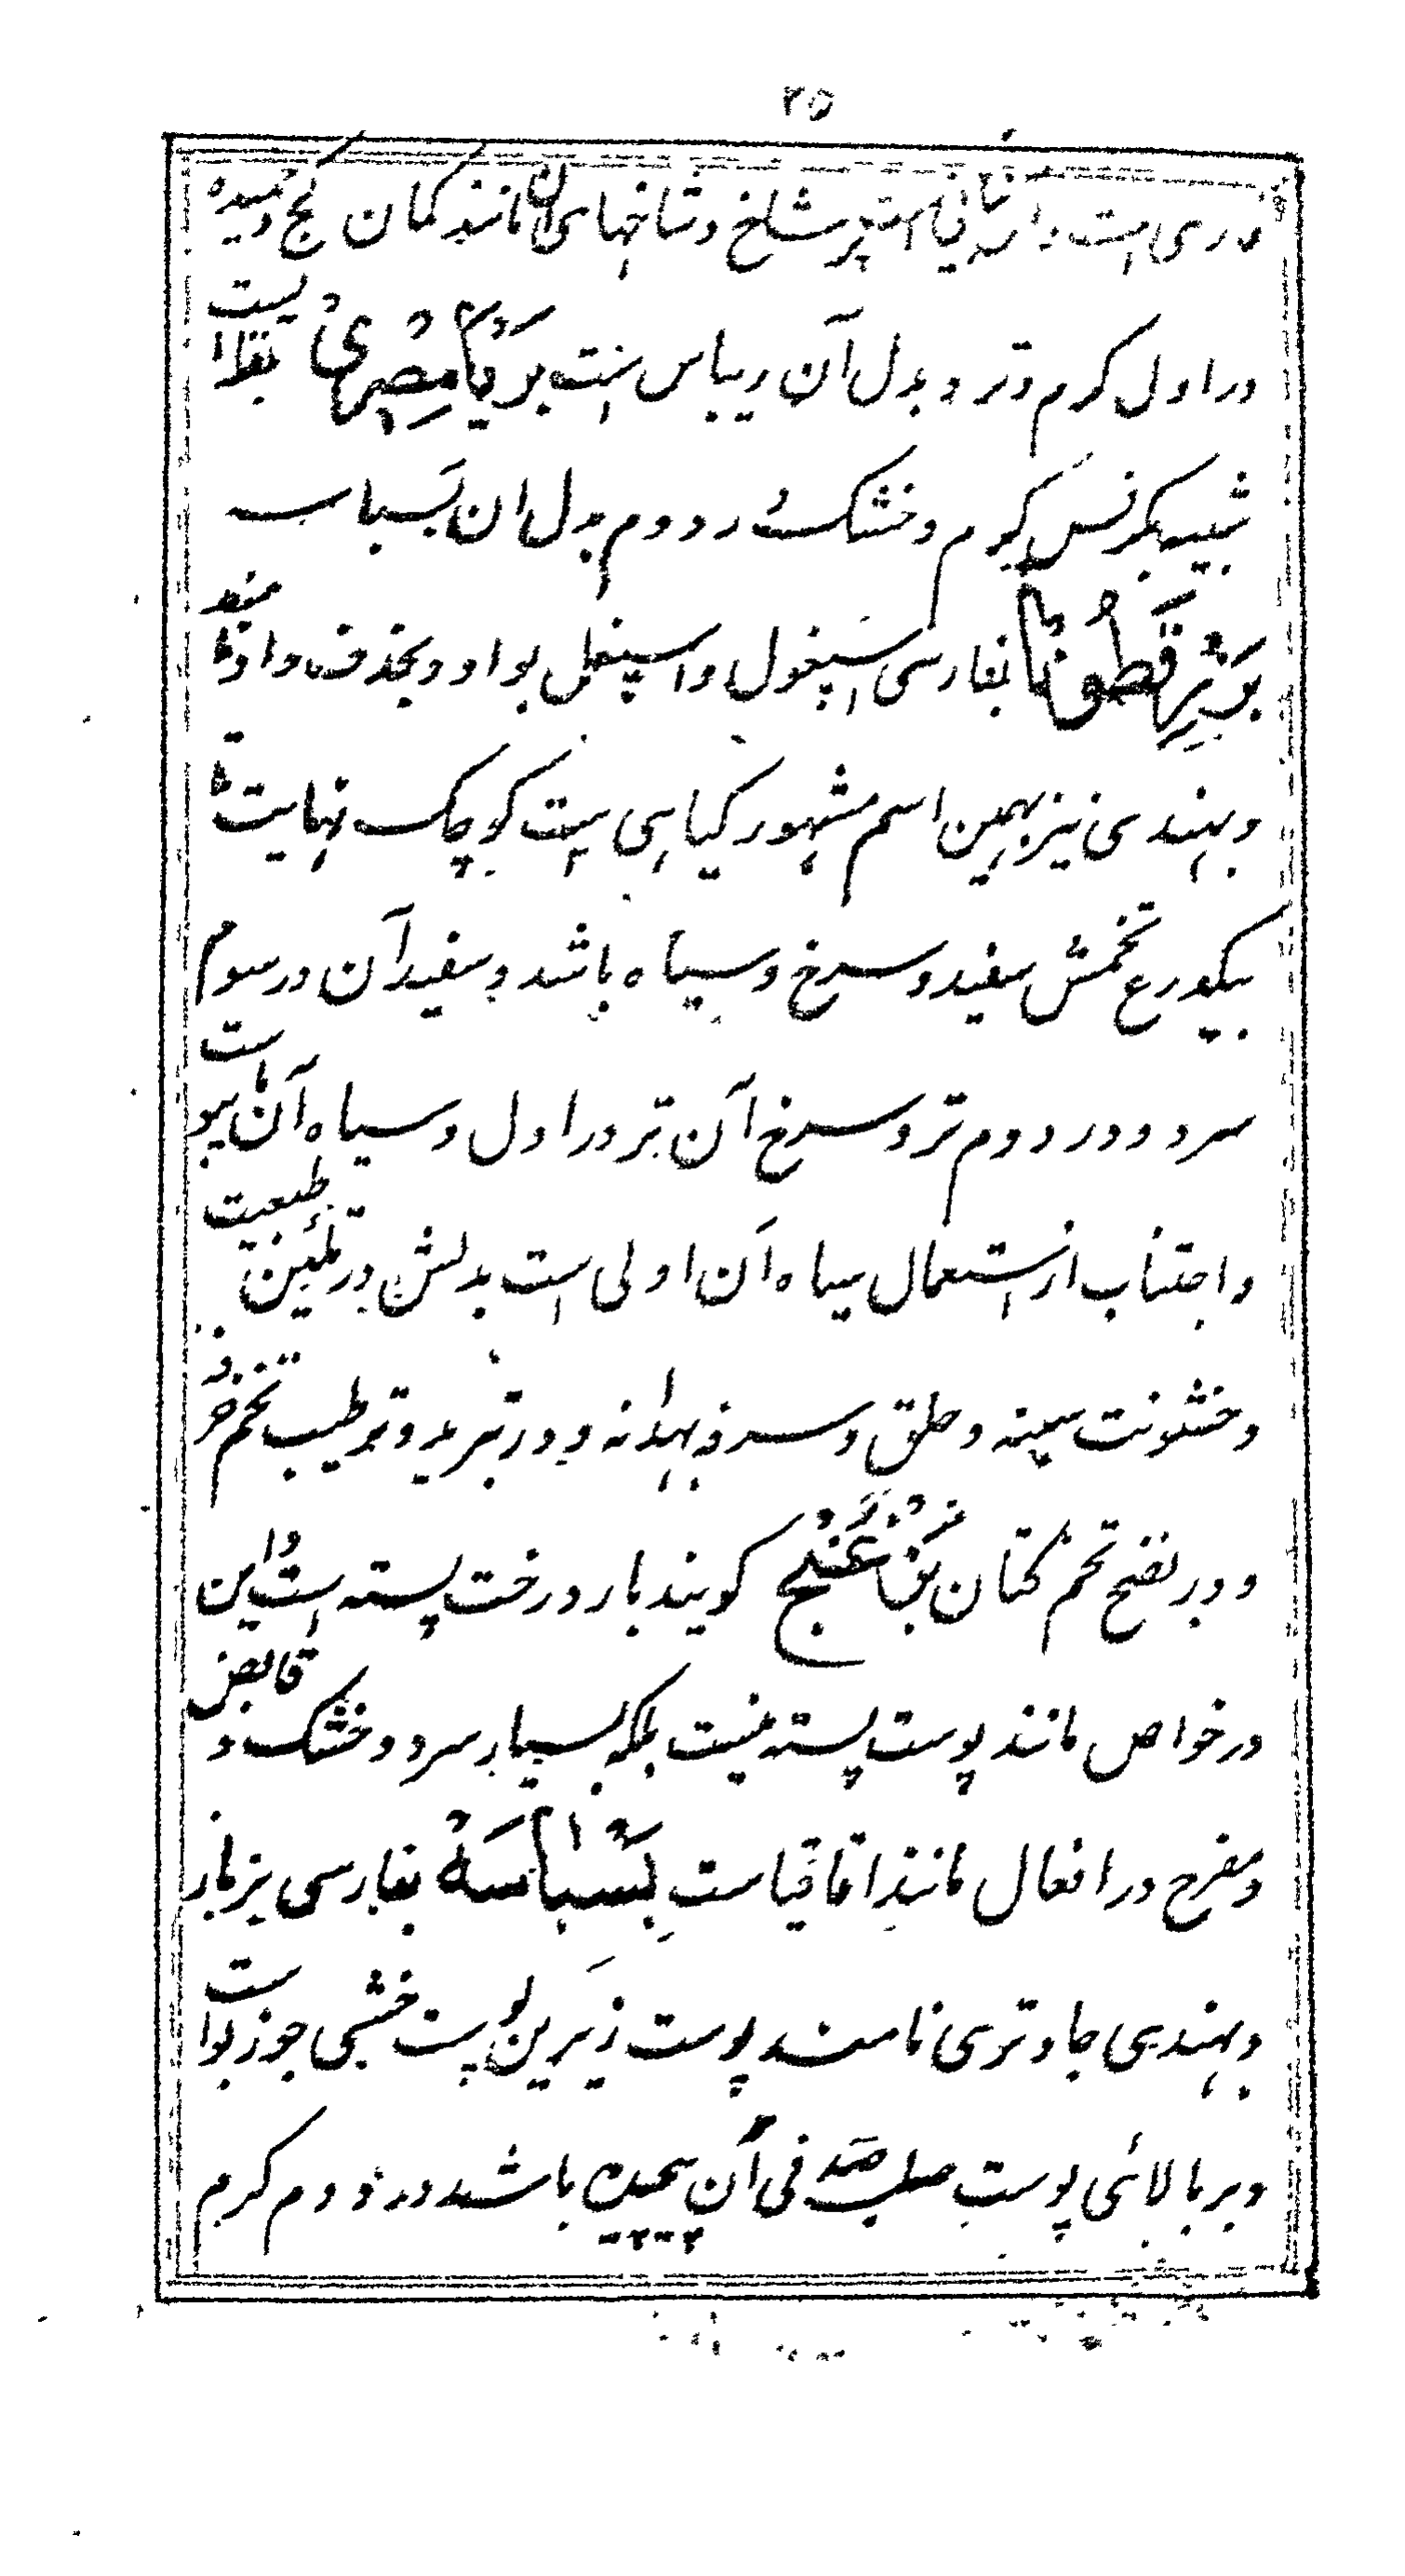 ۲۵
است پرشاخ و شاخهای آن مانند کمان کج و خمیده
در اول گرم و تر و بدل آن ریباس ست بَرَنامِصْرِیْ لقطا ایست
شبیه بکرفس گرم و خشک در دوم بدل ان بسباسه
بَوْزِرقَطُوْنَا بفارسی اسپغول و اسپغل بواو و بحذف واو
و بهندی نیز بهمین اسم مشهور گیاهی است کوچک نهایت تا
بیکذرع تخمش سفید و سرخ و سیاه باشد و سفید آن در سوم
سرد و در دوم تر و سرخ آن تر در اول و سیاه آن است
و اجتناب از استعمال سیاه آن اولی است بدلش در تلیین طبیعت
و خشونت سینه و حلق و سرفه بهدانه و در تبرید و ترطیب تخم خرفه
و در نضج تخم کتان بُزْغُنْج گویند بار درخت پسته است و این
در خواص مانند پوست پسته نیست بلکه بسیار سرد و خشک و قابض
و مفرح در افعال مانند اقاقیاست بَسْبَاسَهْ بفارسی بزباز
و بهندی جاوتری نامند پوست زیرین پوست خشبی جوز بوا است
و بر بالائی پوست صلب صدفی آن پیچیده باشد در دوم گرم